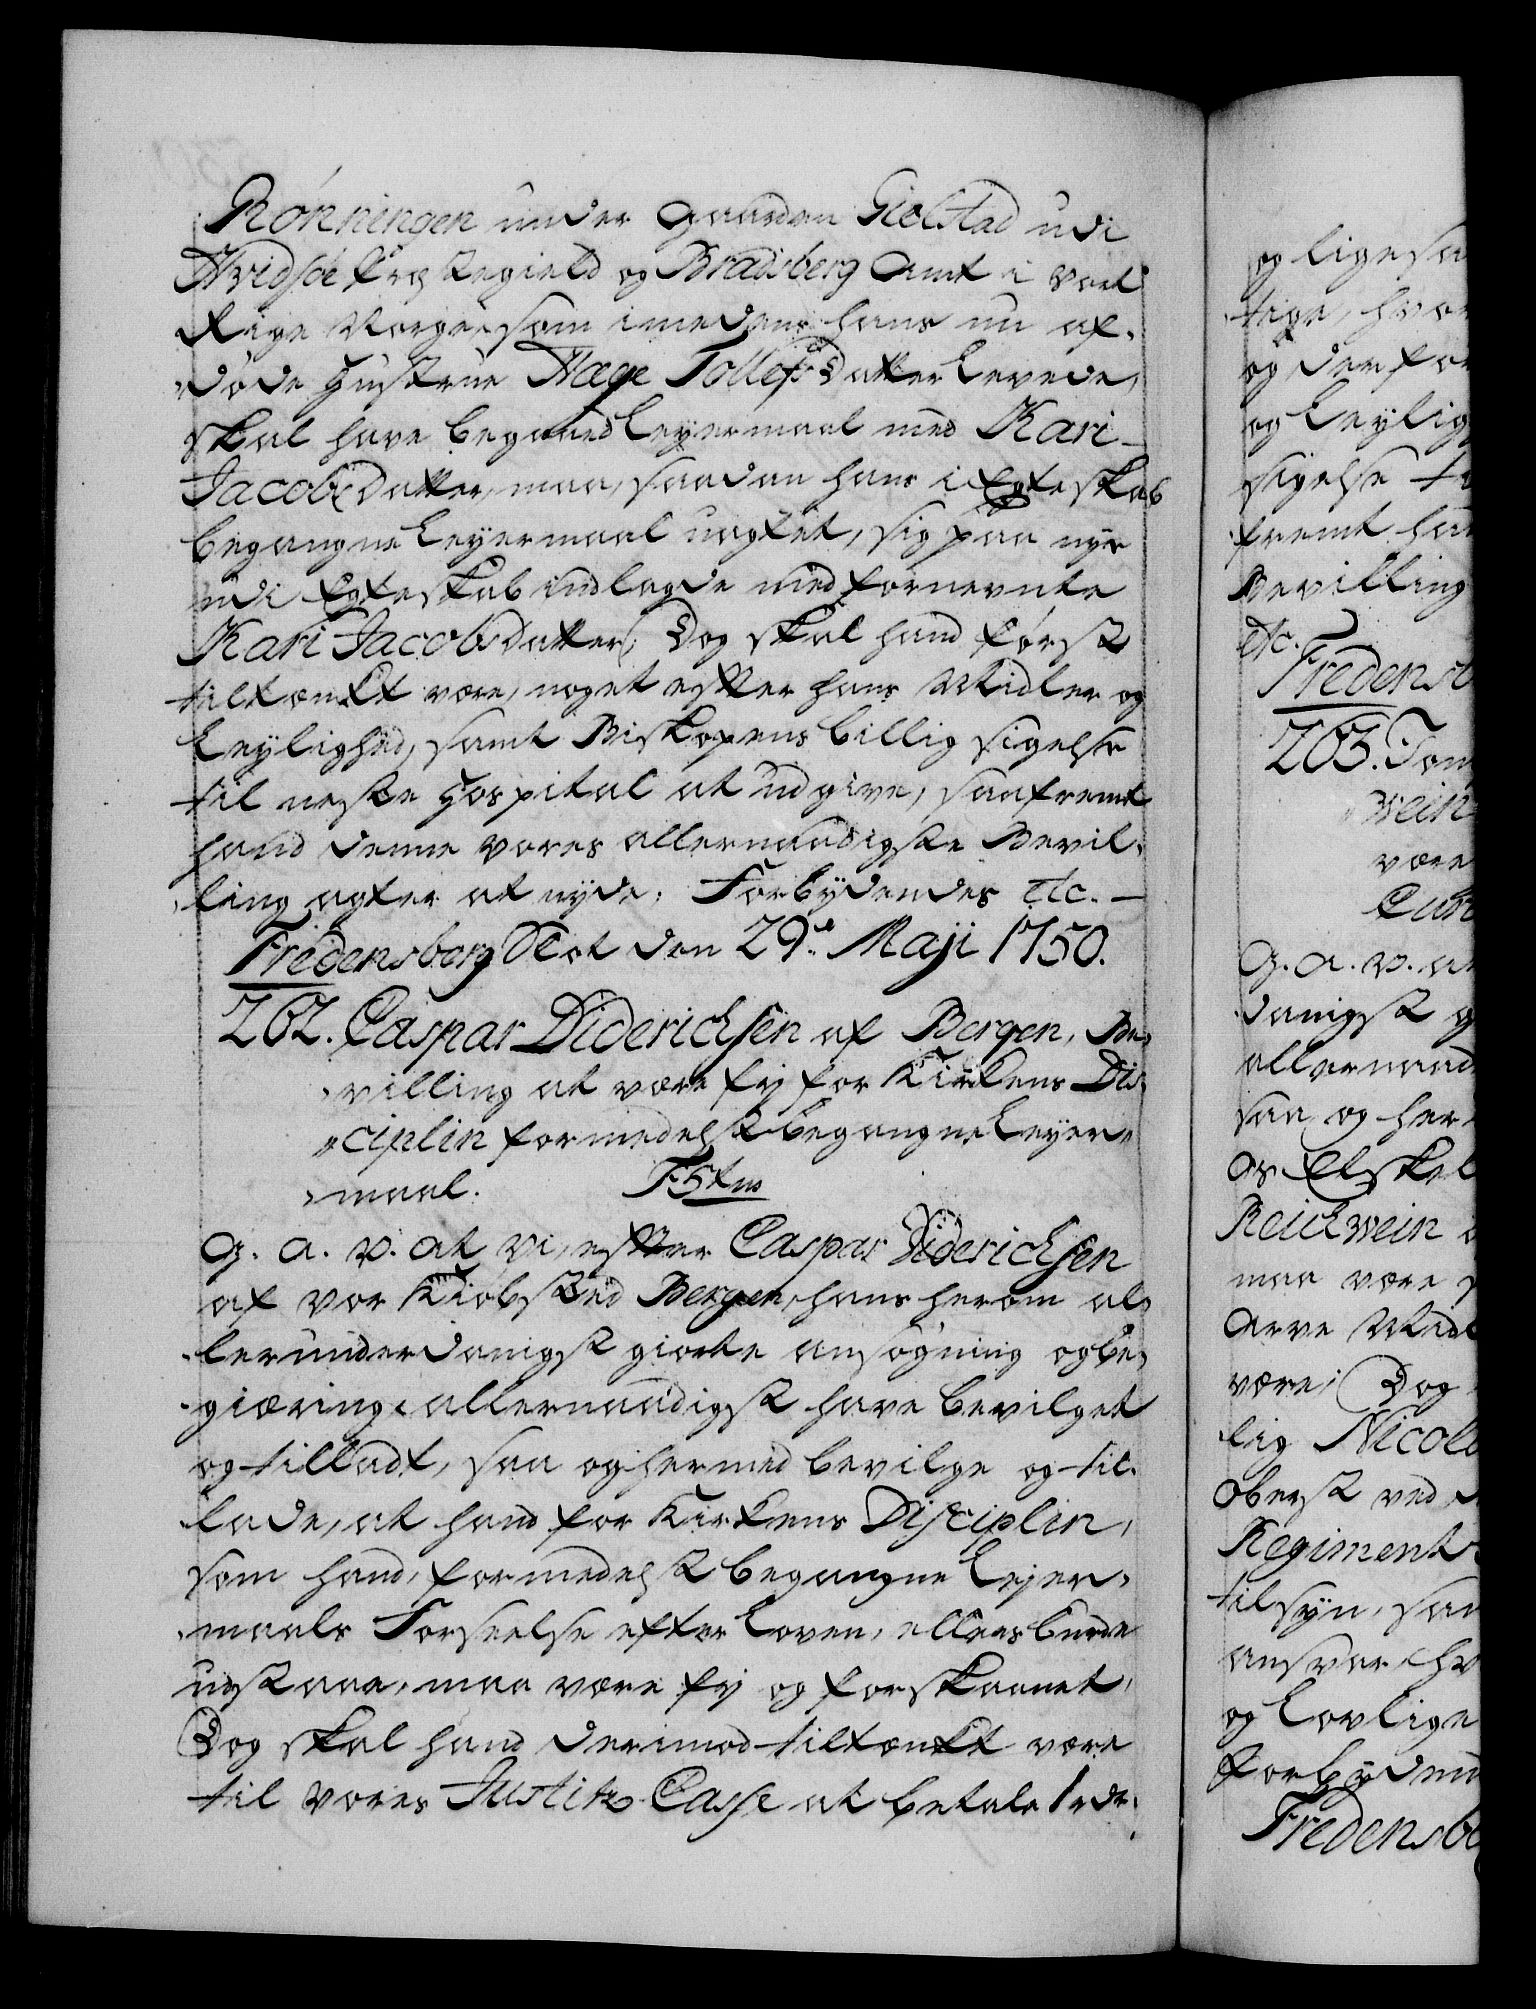 Rönningen under Gaarden Gielstad udi
Hvidsöe Præstegield og Bradsberg Amt i vort
Rige Norge, som imedens hans nu af-
döde Hustrue Hæge Tollefs Datter Levede,
skal have begaaed Leyermaal med Kari
Jacobs Datter, maa, saadan hans i Egteskab
begangne Leyermaal uagtet, sig paa nye
udi Egteskab indlade med fornevnte
Kari Jacobsdatter; Dog skal hand först
tiltænkt være, noget efter hans Midler og
Leylighed, samt Biskopens billig sigelse
til neste Hospital at udgive, saafremt
hand denne vores allernaadigste Bevil-
ling agter at nyde. Forbydendes etc.
Fredensberg Slot den 29de Maji 1750.
262. Caspar Diderichsen af Bergen, Be-
villing at være fri for Kirkens Dis-
ciplin formedelst begangne Leyer-
maal. F5tus
G. A. V. at vi, efter Caspar Diderichsen
af vor Kiöbsted Bergen, hans herom al-
lerunderdanigst giorte ansögning og be-
giæring, allernaadigst have bevilget
og tilladt, saa og hermed bevilge og til-
lade, at hand for Kirkens Disciplin,
som hand, formedelst begangne Lejer-
maals Forseelse efter Loven, ellers burde
udstaae, maa være fri og forskaanet,
Dog skal hand derimod tiltænkt være
til vores Justitz Casse at betale 1 rdr.
og ligesaa
tige, hvor
og derfor
og Leylig
sigelse ti
fremt han
Bevilling
etc.
Fredensb
263. Jom
wein
være
Cur
G. A. V. at
danigst g
allernaad
saa og her
Os Elskel
Reichwein
maa være s
Arve Midl
være; Dog
lig Nicola
Oberst ved
Regiment
tilsyn, saa
ansvar, hv
og Lovlige
Forbydend
Fredensbe